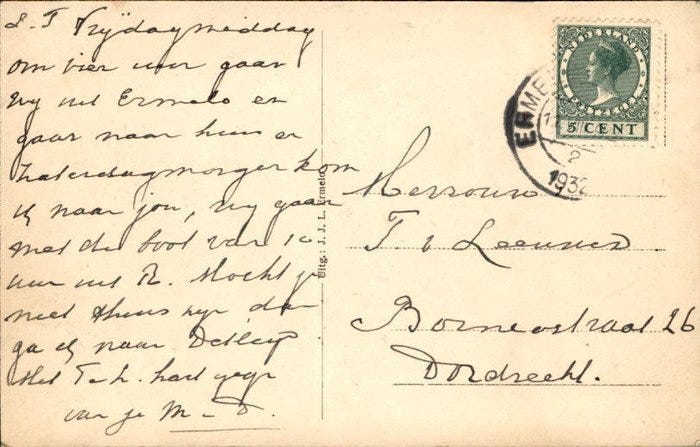 L. T Vrijdagmiddag
om vier uur gaan
wij uit Ermelo en
gaan naar huis en
Zaterdagmorgen kom
ik naar jou, wij gaan
met de boot van 10
uur uit R. Mocht je
niet thuis zijn dan
ga ik naar
Met hart
van je M - D.
Uitg.: J. J. L. Ermelo
NEDERLAND
POSTZEGEL
5 CENT
ERMELO
2
1932
Mevrouw
T. v Leeuwen
Borneostraat 26
Dordrecht.